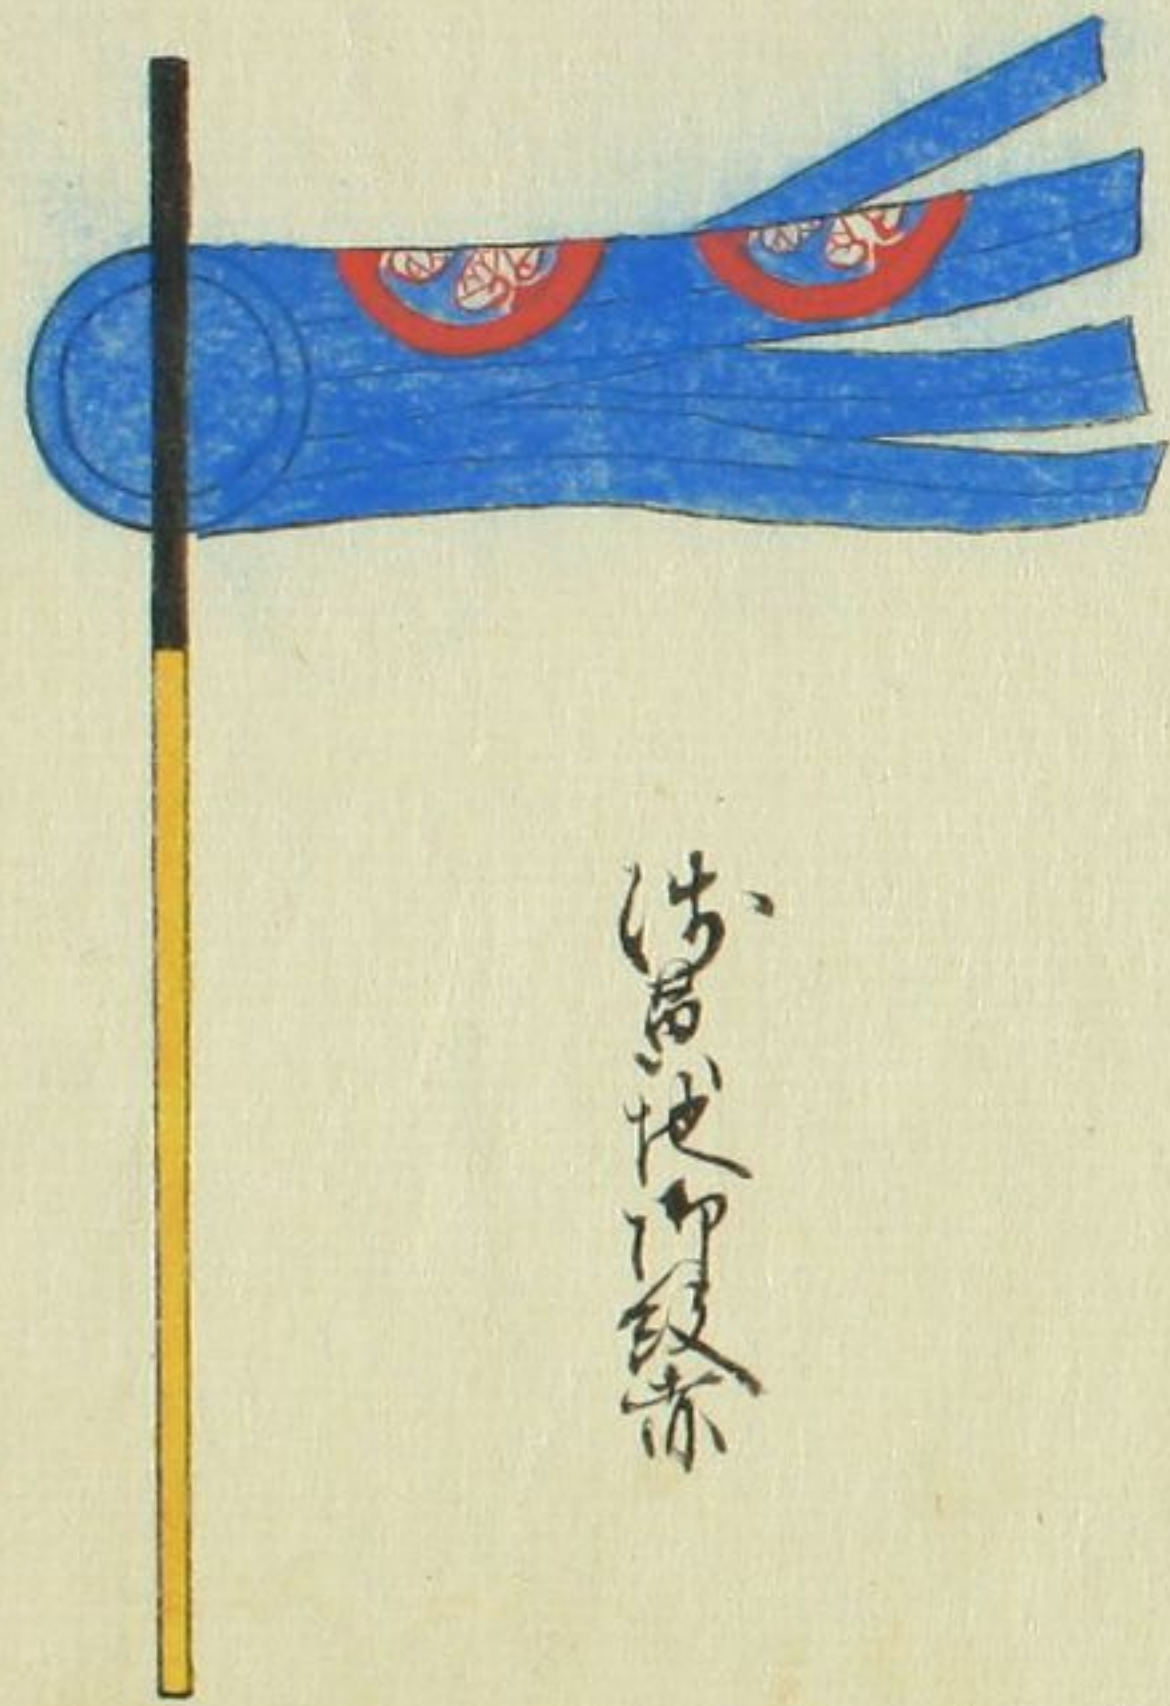 浅黄地御紋赤